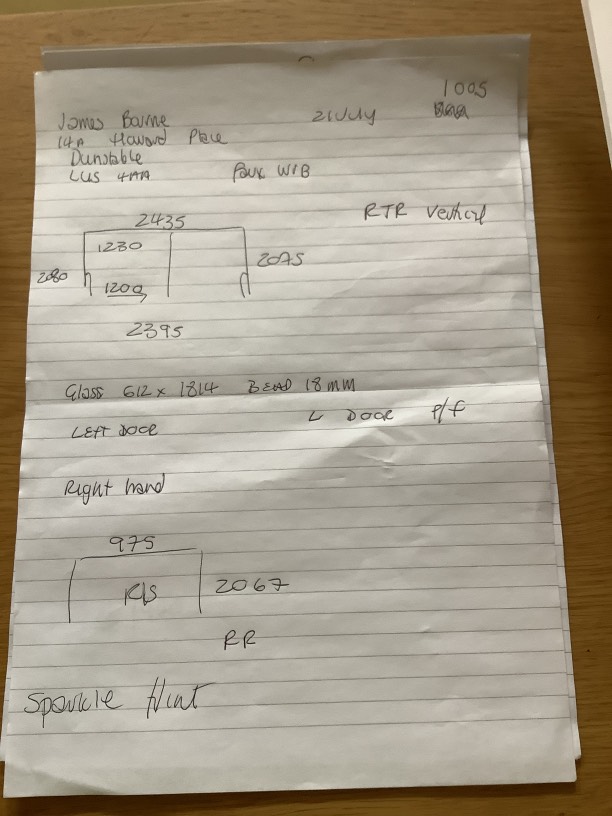 1005
James Bourne 21 July
14A Howard Place
Dunstable
LU5 4AA Faux W/B
RTR Vertical
2435
1230
2080 2075
1200
2395
Glass 612 x 1814 BEAD 18mm
LEFT DOOR L DOOR P/F
Right hand
975
2067
RR
Sparkle flint